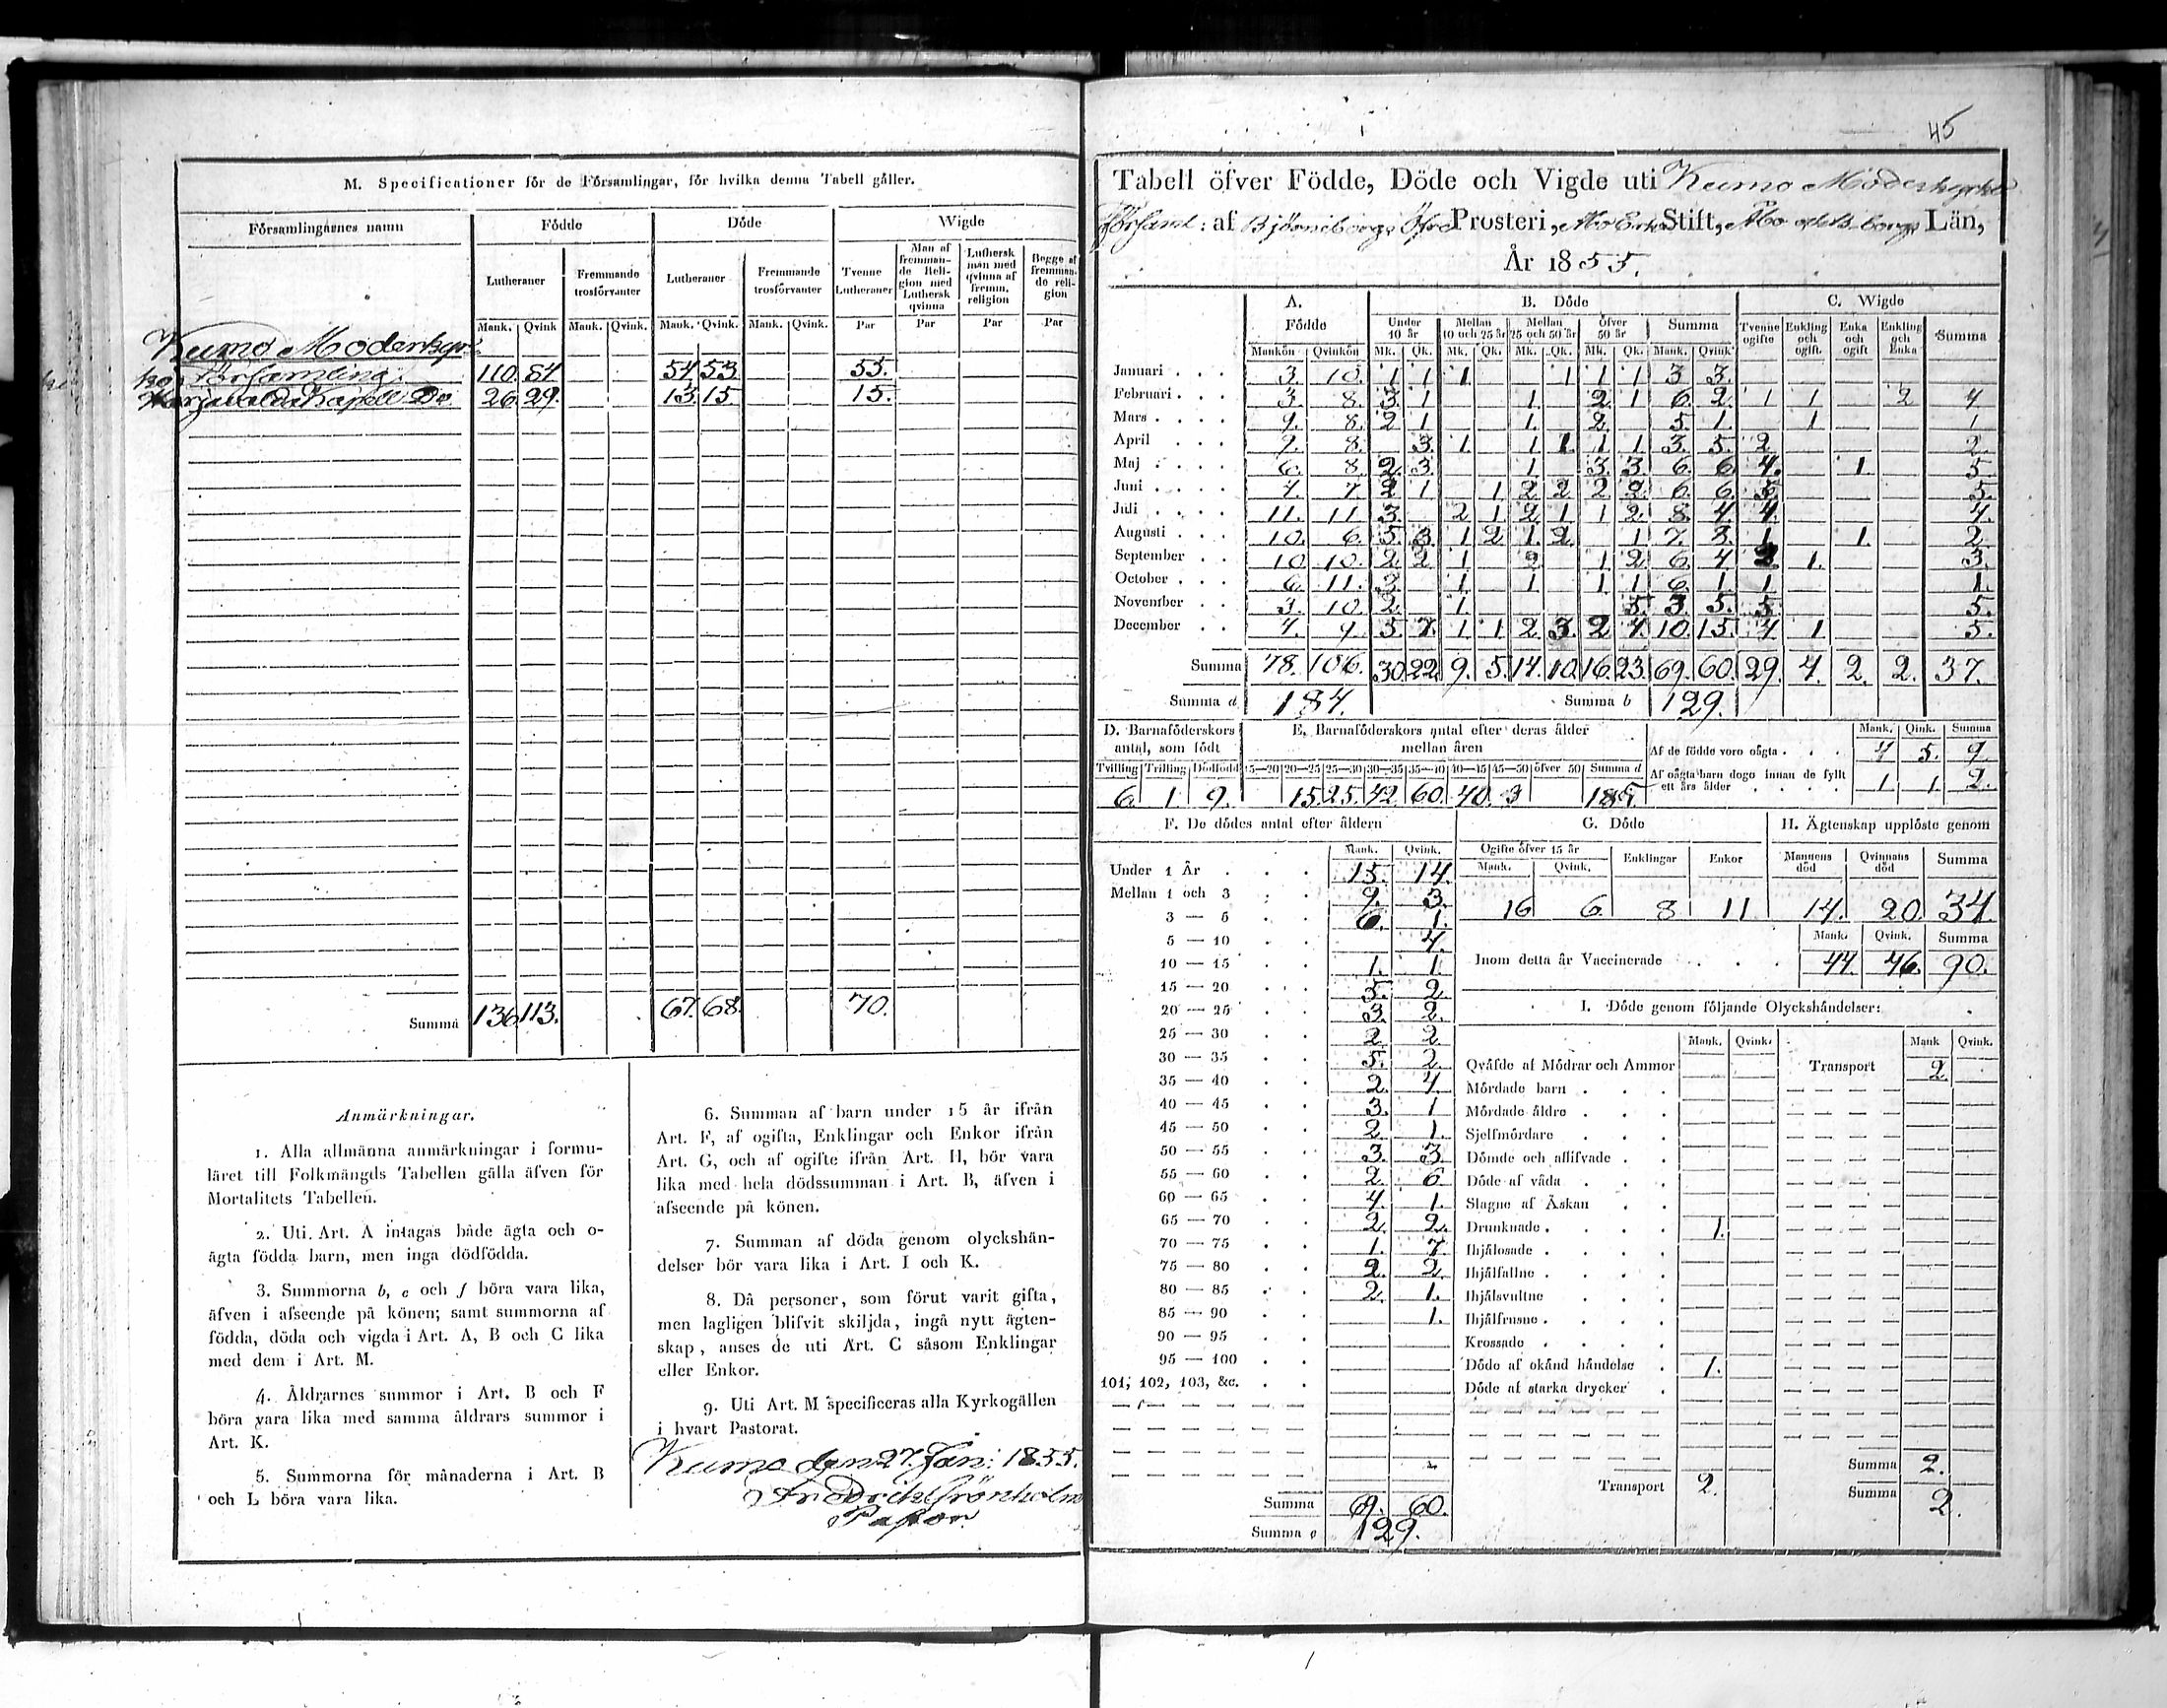 M. Specificationer för de Församlingar, för hvilka denna Tabell gäller.
Församlingarnes namn Födde Döde Wigde
Lutheraner Fremmande trosförvanter Lutheraner Fremmande trosförvanter Tvenne Lutheraner Man af fremmande Religion med Luthersk qvinna Luthersk man med qvinna af fremm. religion Begge af fremmande religion
Mank. Qvink Mank. Qvink. Mank. Qvink. Mank. Qvink. Par Par Par Par
Kumo Moderkyr
ko Församling. 110. 84 54 53. 55.
Harjavalda Kapell Do 26. 29. 13. 15. 15.
Summa 136. 113. 67. 68. 70.
Anmärkningar.
1. Alla allmänna anmärkningar i formu-
läret till Folkmängds Tabellen gälla äfven för
Mortalitets Tabellen.
2. Uti. Art. A intagas både ägta och o-
ägta födda barn, men inga dödfödda.
3. Summorna b, e och f böra vara lika,
äfven i afseende på könen; samt summorna af
födda, döda och vigda i Art. A, B och C lika
med dem i Art. M.
4. Åldrarnes summor i Art. B och F
böra vara lika med samma åldrars summor i
Art. K.
5. Summorna för månaderna i Art. B
och L böra vara lika.
6. Summan af barn under 15 år ifrån
Art. F, af ogifta, Enklingar och Enkor ifrån
Art. G, och af ogifte ifrån Art. H, bör vara
lika med hela dödssumman i Art. B, äfven i
afseende på könen.
7. Summan af döda genom olyckshän-
delser bör vara lika i Art. I och K.
8. Då personer, som förut varit gifta,
men lagligen blifvit skiljda, ingå nytt ägten-
skap, anses de uti Art. C såsom Enklingar
eller Enkor.
9. Uti Art. M specificeras alla Kyrkogällen
i hvart Pastorat.
Kumo den 27. Jan: 1855.
Fredrik Grönholm
Pastor.
45
Tabell öfver Födde, Döde och Vigde uti Kumo Moderkyrko
Församl: af Björneborgs Öfre Prosteri, Åbo Erke Stift, Åbo och B-borgs Län,
År 1855.
A. B. Döde C. Wigde
Födde Under 10 år Mellan 10 och 25 år Mellan 25 och 50 år Öfver 50 år Summa Tvenne ogifte Enkling och ogift. Enka och ogift Enkling och Enka Summa
Mankön Qvinkön Mk. Qk. Mk. Qk. Mk. Qk. Mk. Qk. Mank. Qvink
Januari . . . 3. 10. 1 1 1. 1 1 1 3 3.
Februari . . . 3 8. 3. 1 1. 2. 1 6. 2. 1 1 2 4
Mars . . . . 9. 8. 2 1 1. 2. 5. 1. 1 1
April . . . 9. 8. 3. 1. 1 1. 1 1 3. 5. 2. 2.
Maj . . . . 6. 8. 2. 3. 1 3. 3. 6. 6 4. 1. 5
Juni . . . . 4. 7. 2 1 1 2 2 2 2. 6. 6. 5 5.
Juli . . . . 11. 11. 3. 2 1. 2 1 1 2. 8. 4. 4. 4.
Augusti . . . 10. 6. 5. 3. 1 2 1. 2. 1 7. 8. 1. 1. 2
September . . 10 10. 2 2 1 2 1 2 6. 4 2. 1. 3.
October . . . 6. 11. 3. 1 1 1 1 6. 1 1 1.
November . . 3. 10. 2. 1 5. 3. 5. 5. 5.
December . . 4. 9. 5. 7. 1. 1 2 3. 2 4. 10. 15. 4 1 5.
Summa 78. 106. 30. 22. 9. 5. 14. 10. 16. 23. 69. 60. 29. 4. 2. 2. 37.
Summa a 184. Summa b 129.
D. Barnaföderskors antal, som födt E. Barnaföderskors antal efter deras ålder mellan åren Mank. Qink. Summa
Af de födde voro oägta . . . 4 5. 9.
Tvilling Trilling Dödfödd 15—20 20—25 25—30 30—35 35—40 40—45 45—50 öfver 50 Summa d
Af oägta barn dogo innan de fyllt ett års ålder . . . . 1 1. 2.
6. 1. 9. 15. 25. 42. 60. 40. 3 185.
F. De dödes antal efter åldern
Mank. Qvink.
Under 1 År . . . 15. 14.
Mellan 1 och 3 . . 9. 3.
3 — 5 . . 6. 1.
5 — 10 . . 4.
10 — 15 . . 1. 1.
15 — 20 . . 5. 2
20 — 25 . . 3. 2.
25 — 30 . . 2 2
30 — 35 . . 5. 2.
35 — 40 . . 2. 4.
40 — 45 . . 3. 1
45 — 50 . . 2. 1.
50 — 55 . . 3. 3.
55 — 60 . . 2. 6
60 — 65 . . 4. 1.
65 — 70 . . 2. 2.
70 — 75 . . 1. 7.
75 — 80 . . 2. 2.
80 — 85 . . 2. 1.
85 — 90 . . 1.
90 — 95 . .
95 — 100 . .
101, 102, 103, &c. . .
Summa 69. 60.
Summa e 129.
G. Döde
Ogifte öfver 15 år Enklingar Enkor
Mank. Qvink.
16 6. 8 11
H. Ägtenskap upplöste genom
Mannens död Qvinnans död Summa
14. 20. 34.
Mank. Qvink. Summa
Inom detta år Vaccinerade . . . 44. 46. 90.
I. Döde genom följande Olyckshändelser:
Mank. Qvink. Mank Qvink.
Qväfde af Mödrar och Ammor Transport 2
Mördade barn . . .
Mördade äldre . . .
Sjelfmördare . . .
Dömde och aflifvade . .
Döde af våda . . .
Slagne af Åskan . .
Drunknade . . . . 1.
Ihjälosade . . . .
Ihjälfallne . . . .
Ihjälsvultne . . .
Ihjälfrusne . . . .
Krossade . . . .
Döde af okänd händelse . 1.
Döde af starka drycker .
Summa 2.
Transport 2. Summa 2.